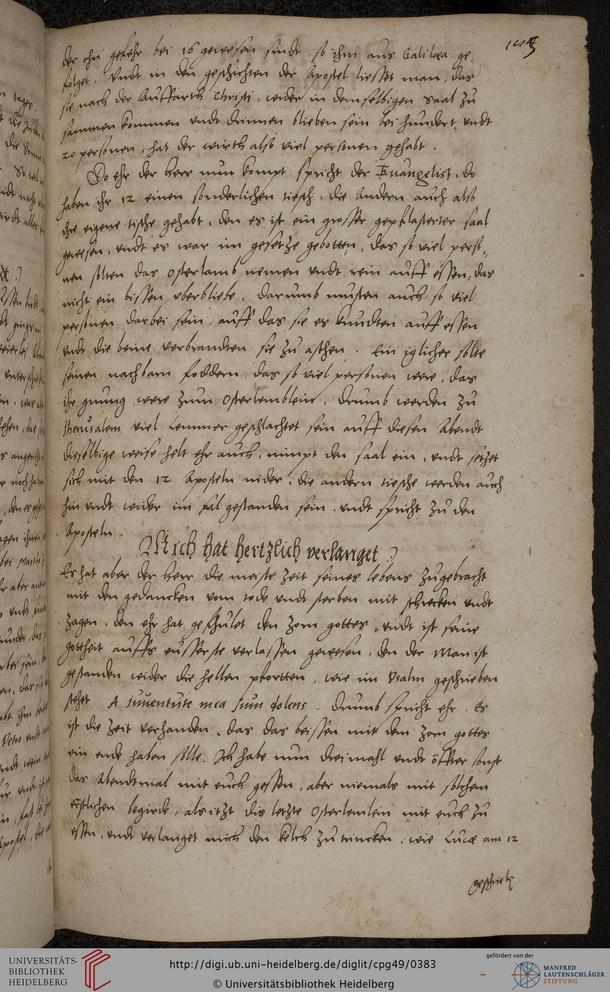 der ehr gefehr bei 16 gewesen sindt, so ihm aus Galilæa ge-
folget. Undt in den geschichten der Apostel liesset man, das
sie nach der Auffarth Christi, wider in demselbigen saal zu
sammen kommen undt drinnen blieben sein bei hundert undt
20 personen, hat der wirth also viel personen gehabt.
Do ehr der Herr nun kompt spricht der Evangelist, do
haben ihr 12 einen sonderlichen tiesch, die Andern auch also
ihre eigene tische gehabt, den es ist ein grosser gepflasterter saal
gewesen, undt es war im gesetze gebotten, das so viel perso-
nen solten das osterlamb nemen undt rein auff essen, das
nicht ein bissen uberbliebe. Darumb musten auch so viel
personen darbei sein, auff das sie es kundten auff essen
undt die beine verbrandten sie zu aschen. Ein iglicher solte
seinen nachbarn foddern, das so viel personen were, das
ihr gnung were zum Osterlemblein, drumb werden zu
Jherusalem viel Lemmer geschlachtet sein auff diesen Abendt
dieselbige weise helt ehr auch, nimpt den saal ein, undt setzet
sich mit den 12 Aposteln nider, die andern tiesche werden auch
hin undt wider im sal gestanden sein, undt spricht zu den
Aposteln.
Mich hat hertzlich verlanget
Es hat aber der Herr die meiste zeit seines lebens zugebracht
mit den gedancken vom tode undt sterben mit schrecken undt
zagen, den ehr hat gefhulet den zorn gottes, undt ist seine
gottheit auffs eusserste verlassen gewesen, den der Man ist
gestanden wider die hellen pfortten, wie im Psalm geschrieben
stehet A iuventute mea sum dolens. Drumb spricht ehr. Es
ist die Zeit verhanden, das das beissen mit dem zorn gottes
ein ende haben solle. Ich habe nun dreimahl undt öffter sonst
das Abendtmal mit euch gessen, aber niemals mit solchen
begirde, als itzt dis letzte Osterlemlein mit euch zu
essen, undt verlanget mich den kelch zu trincken, wie Lucæ am 12
geschrieb
UNIVERSITÄTS-
BIBLIOTHEK
HEIDELBERG
http://digi.ub.uni-heidelberg.de/diglit/cpg49/0383
© Universitätsbibliothek Heidelberg
gefördert von der
MANFRED
LAUTENSCHLÄGER
STIFTUNG